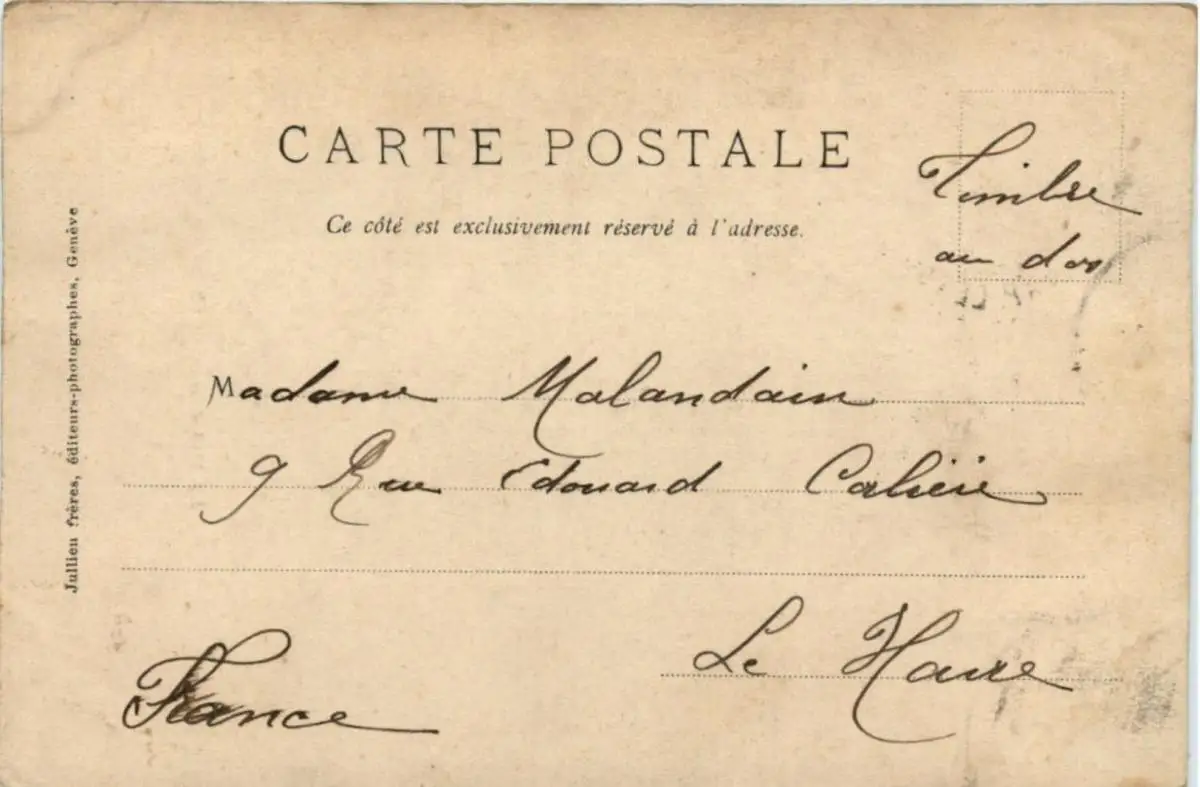 CARTE POSTALE
Ce côté est exclusivement réservé à l'adresse.
Timbre
au dos
Jullien frères, éditeurs-photographes, Genève
Madame Malandain
9 Rue Edouard
Le Havre
France